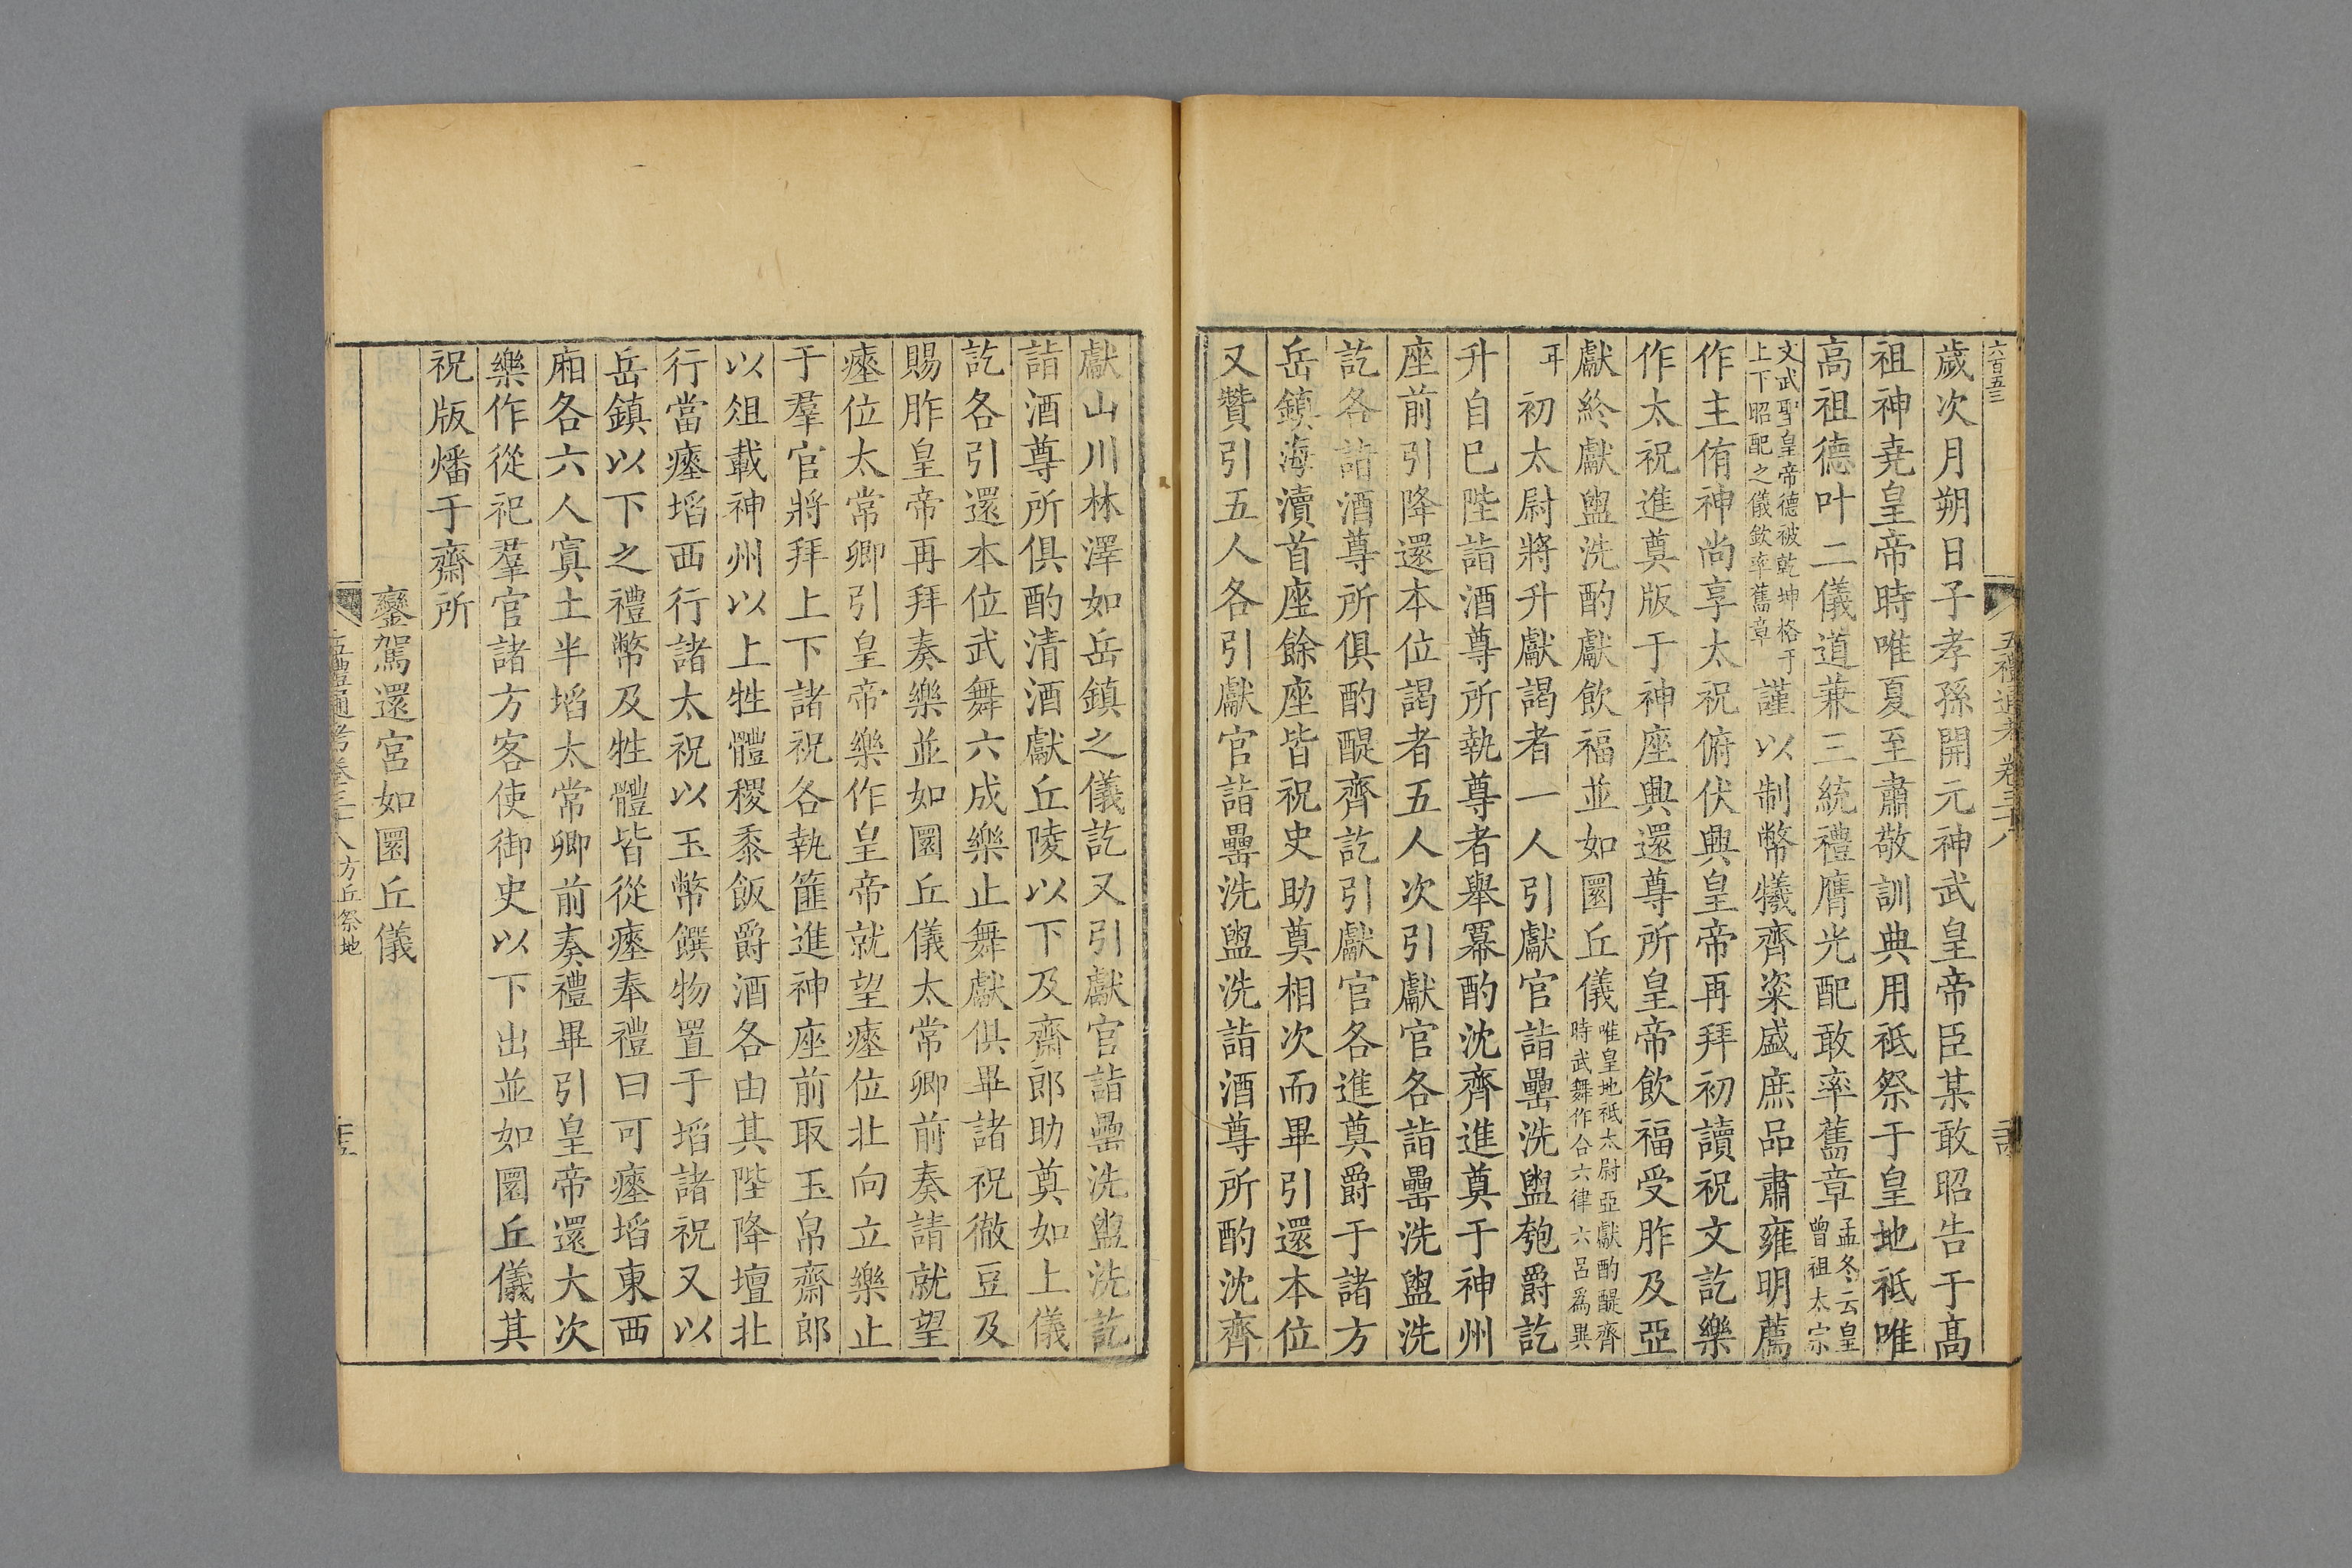 六百五三
五禮通考卷三十八
歲次月朔日子孝孫開元神武皇帝臣某敢昭告于高
祖神堯皇帝時唯夏至肅敬訓典用祗祭于皇地祇唯
高祖德叶二儀道兼三統禮膺光配敢率舊章孟冬云皇曾祖太宗
文武聖皇帝德被乾坤格于上下昭配之儀欽率舊章謹以制幣犧齊粢盛庶品肅雍明薦
作主侑神尚享太祝俯伏興皇帝再拜初讀祝文訖樂
作太祝進奠版于神座興還尊所皇帝飲福受胙及亞
獻終獻盥洗酌獻飲福並如圜丘儀唯皇地祇太尉亞獻酌醍齊時武舞作合六律六呂爲異
耳初太尉將升獻謁者一人引獻官詣罍洗盥匏爵訖
升自巳陛詣酒尊所執尊者舉冪酌沈齊進奠于神州
座前引降還本位謁者五人次引獻官各詣罍洗盥洗
訖各詣酒尊所俱酌醍齊訖引獻官各進奠爵于諸方
岳鎮海瀆首座餘座皆祝史助奠相次而畢引還本位
又贊引五人各引獻官詣罍洗盥洗詣酒尊所酌沈齊
獻山川林澤如岳鎮之儀訖又引獻官詣罍洗盥洗訖
詣酒尊所俱酌清酒獻丘陵以下及齋郎助奠如上儀
訖各引還本位武舞六成樂止舞獻俱畢諸祝徹豆及
賜胙皇帝再拜奏樂並如圜丘儀太常卿前奏請就望
瘞位太常卿引皇帝樂作皇帝就望瘞位北向立樂止
于羣官將拜上下諸祝各執篚進神座前取玉帛齋郎
以俎載神州以上牲體稷黍飯爵酒各由其陛降壇北
行當瘞埳西行諸太祝以玉幣饌物置于埳諸祝又以
岳鎮以下之禮幣及牲體皆從瘞奉禮曰可瘞埳東西
廂各六人寘土半埳太常卿前奏禮畢引皇帝還大次
樂作從祀羣官諸方客使御史以下出並如圜丘儀其
祝版燔于齋所
鑾駕還宮如圜丘儀
五禮通考卷三十八方丘祭地